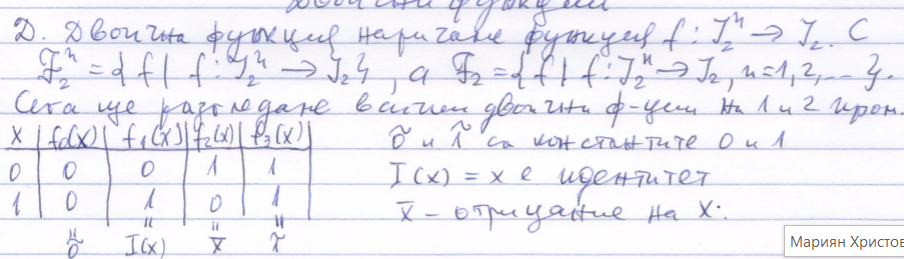 Двоични функции
Д. Двоична функция наричаме функция f: J₂ⁿ → J₂. С
F₂ⁿ = {f | f: J₂ⁿ → J₂}, а F₂ = {f | f: J₂ⁿ → J₂, n=1,2,...}.
Сега ще разгледаме всички двоични ф-ции на 1 и 2 пром.
x | f₀(x) | f₁(x) | f₂(x) | f₃(x)
0 | 0 | 0 | 1 | 1
1 | 0 | 1 | 0 | 1
õ и ĩ са константите 0 и 1
I(x) = x е идентитет
x̄ - отрицание на x.
" " " "
õ I(x) x̄ ĩ
Мариян Христов